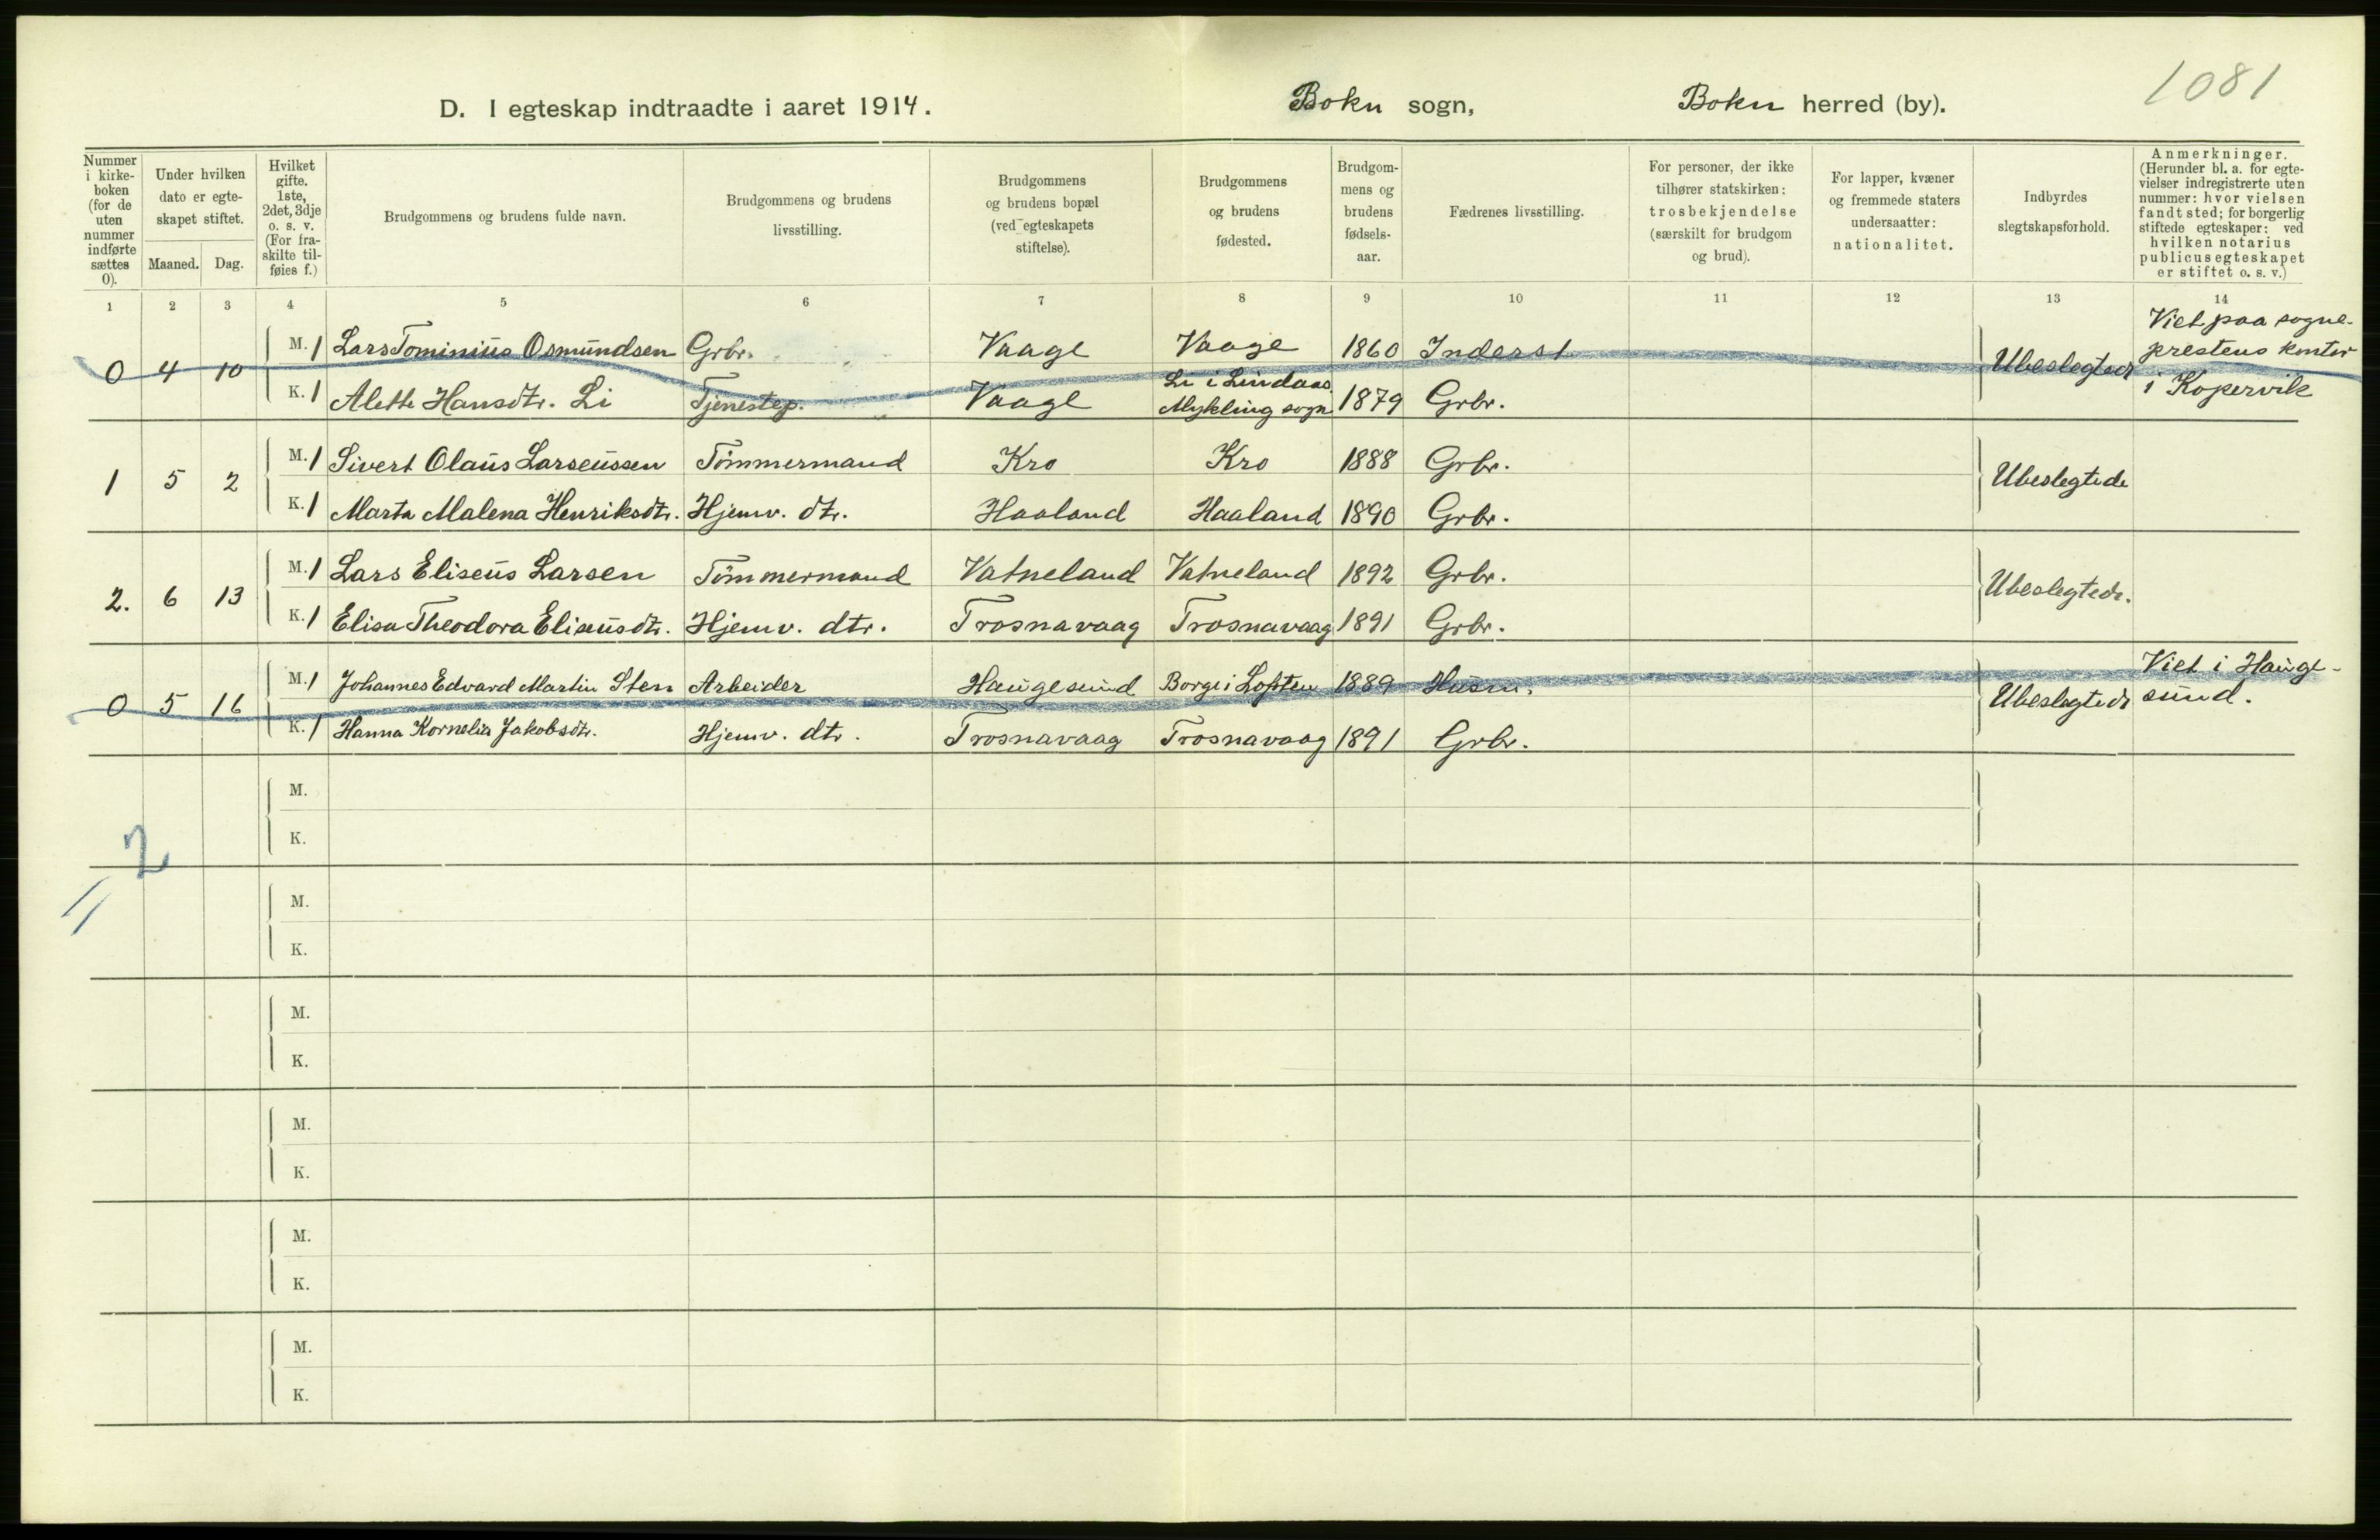 1081
D. I egteskap indtraadte i aaret 1914. Bokn sogn, Bokn herred (by).
Nummer i kirke-boken (for de uten nummer indførte sættes 0).
Under hvilken dato er egte-skapet stiftet.
Maaned. Dag.
Hvilket gifte. 1ste, 2det, 3dje o. s. v. (For fra-skilte til-føies f.)
Brudgommens og brudens fulde navn.
Brudgommens og brudens livsstilling.
Brudgommens og brudens bopæl (ved egteskapets stiftelse).
Brudgommens og brudens fødested.
Brudgom-mens og brudens fødsels-aar.
Fædrenes livsstilling.
For personer, der ikke tilhører statskirken: trosbekjendelse (særskilt for brudgom og brud).
For lapper, kvæner og fremmede staters undersaatter: nationalitet.
Indbyrdes slegtskapsforhold.
Anmerkninger. (Herunder bl. a. for egte-vielser indregistrerte uten nummer: hvor vielsen fandt sted; for borgerlig stiftede egteskaper: ved hvilken notarius publicus egteskapet er stiftet o. s. v.)
1 2 3 4 5 6 7 8 9 10 11 12 13 14
0 4 10 M. 1 Lars Tominius Osmundsen Grbr. Vaage Vaage 1860 Inderst Ubeslegtede Viet paa sogne-prestens kontor i Kopervik
K. 1 Alette Hansdtr. Li Tjenestep. Vaage Li i Lindaas Mykling sogn 1879 Grbr.
1 5 2 M. 1 Sivert Olaus Larseussen Tömmermand Kro Kro 1888 Grbr. Ubeslegtede
K. 1 Marta Malena Henriksdtr. Hjemv. dtr. Haaland Haaland 1890 Grbr.
2. 6 13 M. 1 Lars Eliseus Larsen Tömmermand Vatneland Vatneland 1892 Grbr. Ubeslegtede.
K. 1 Elisa Theodora Eliseusdtr. Hjemv. dtr. Trosnavaag Trosnavaag 1891 Grbr.
0 5 16 M. 1 Johannes Edvard Martin Sten Arbeider Haugesund Borge i Lofoten 1889 Husm. Ubeslegtede Viet i Hauge-sund.
K. 1 Hanna Kornelia Jakobsdtr. Hjemv. dtr. Trosnavaag Trosnavaag 1891 Grbr.
M.
K.
2
M.
K.
M.
K.
M.
K.
M.
K.
M.
K.